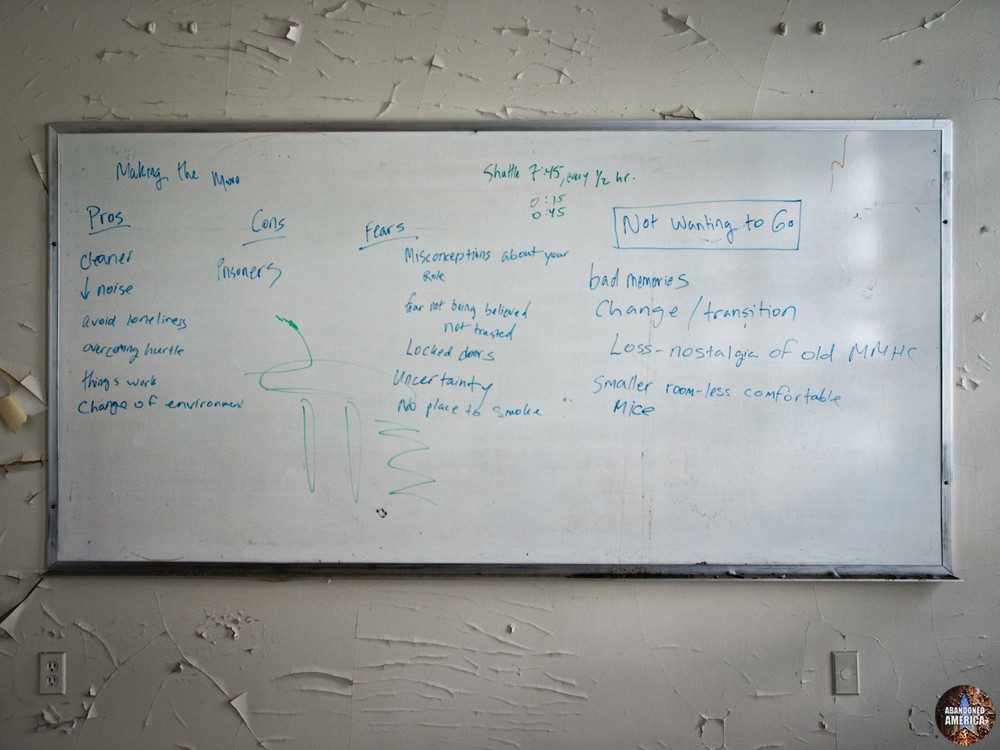 Making the Move
Shuttle 7:45, every 1/2 hr.
0:15
0:45
Pros
cleaner
↓ noise
avoid loneliness
overcoming hurtle
things work
Change of environment
Cons
Prisoners
Fears
Misconceptions about your
Role
fear not being believed
not trusted
Locked doors
Uncertainty
No place to smoke
Not Wanting to Go
bad memories
Change / transition
Loss-nostalgia of old MMHC
Smaller room-less comfortable
Mice
ABANDONED
AMERICA